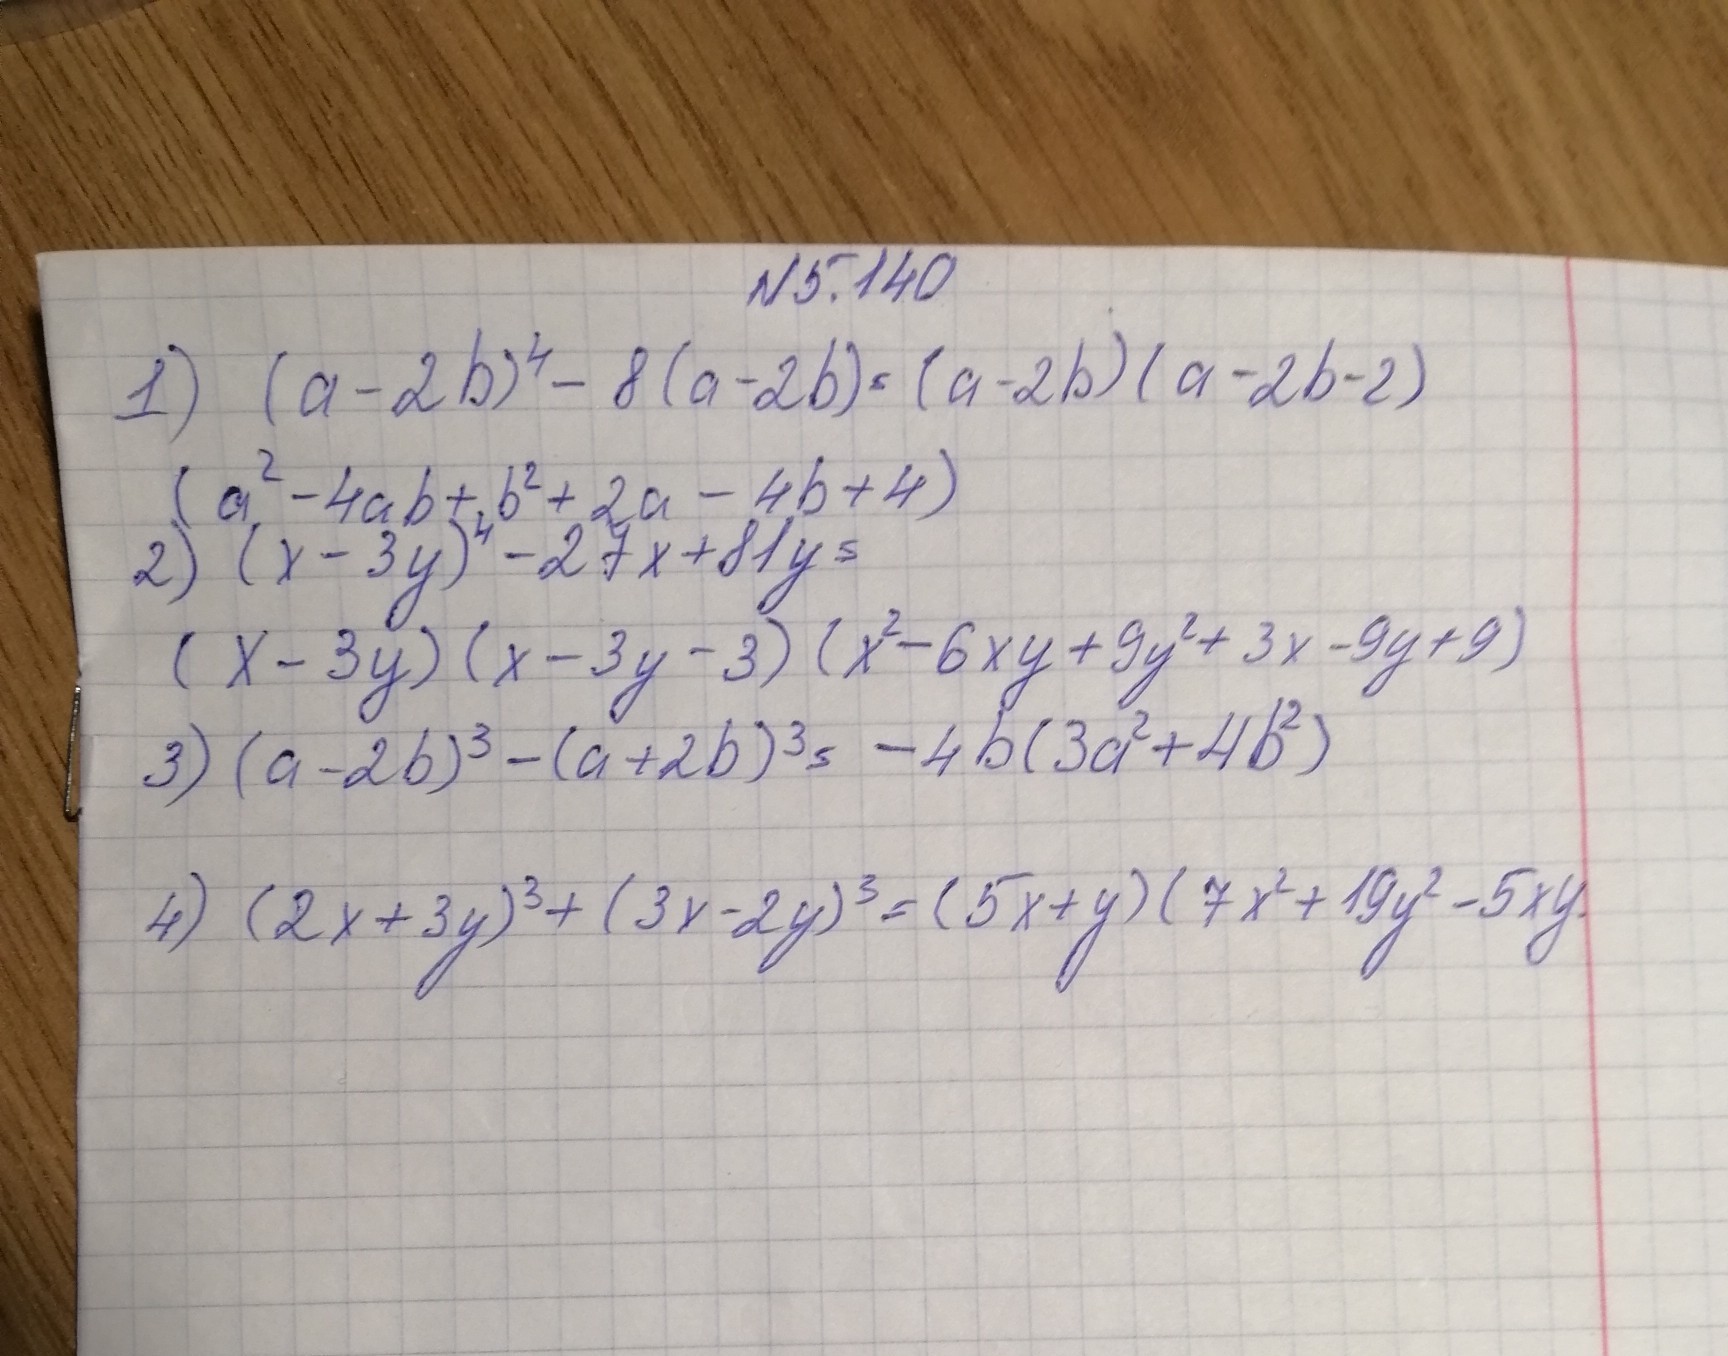 N5.140
1) (a-2b)⁴-8(a-2b)=(a-2b)(a-2b-2)
(a²-4ab+b²+2a-4b+4)
2) (x-3y)⁴-27x+81y=
(x-3y)(x-3y-3)(x²-6xy+9y²+3x-9y+9)
3) (a-2b)³-(a+2b)³= -4b(3a²+4b²)
4) (2x+3y)³+(3x-2y)³=(5x+y)(7x²+19y²-5xy